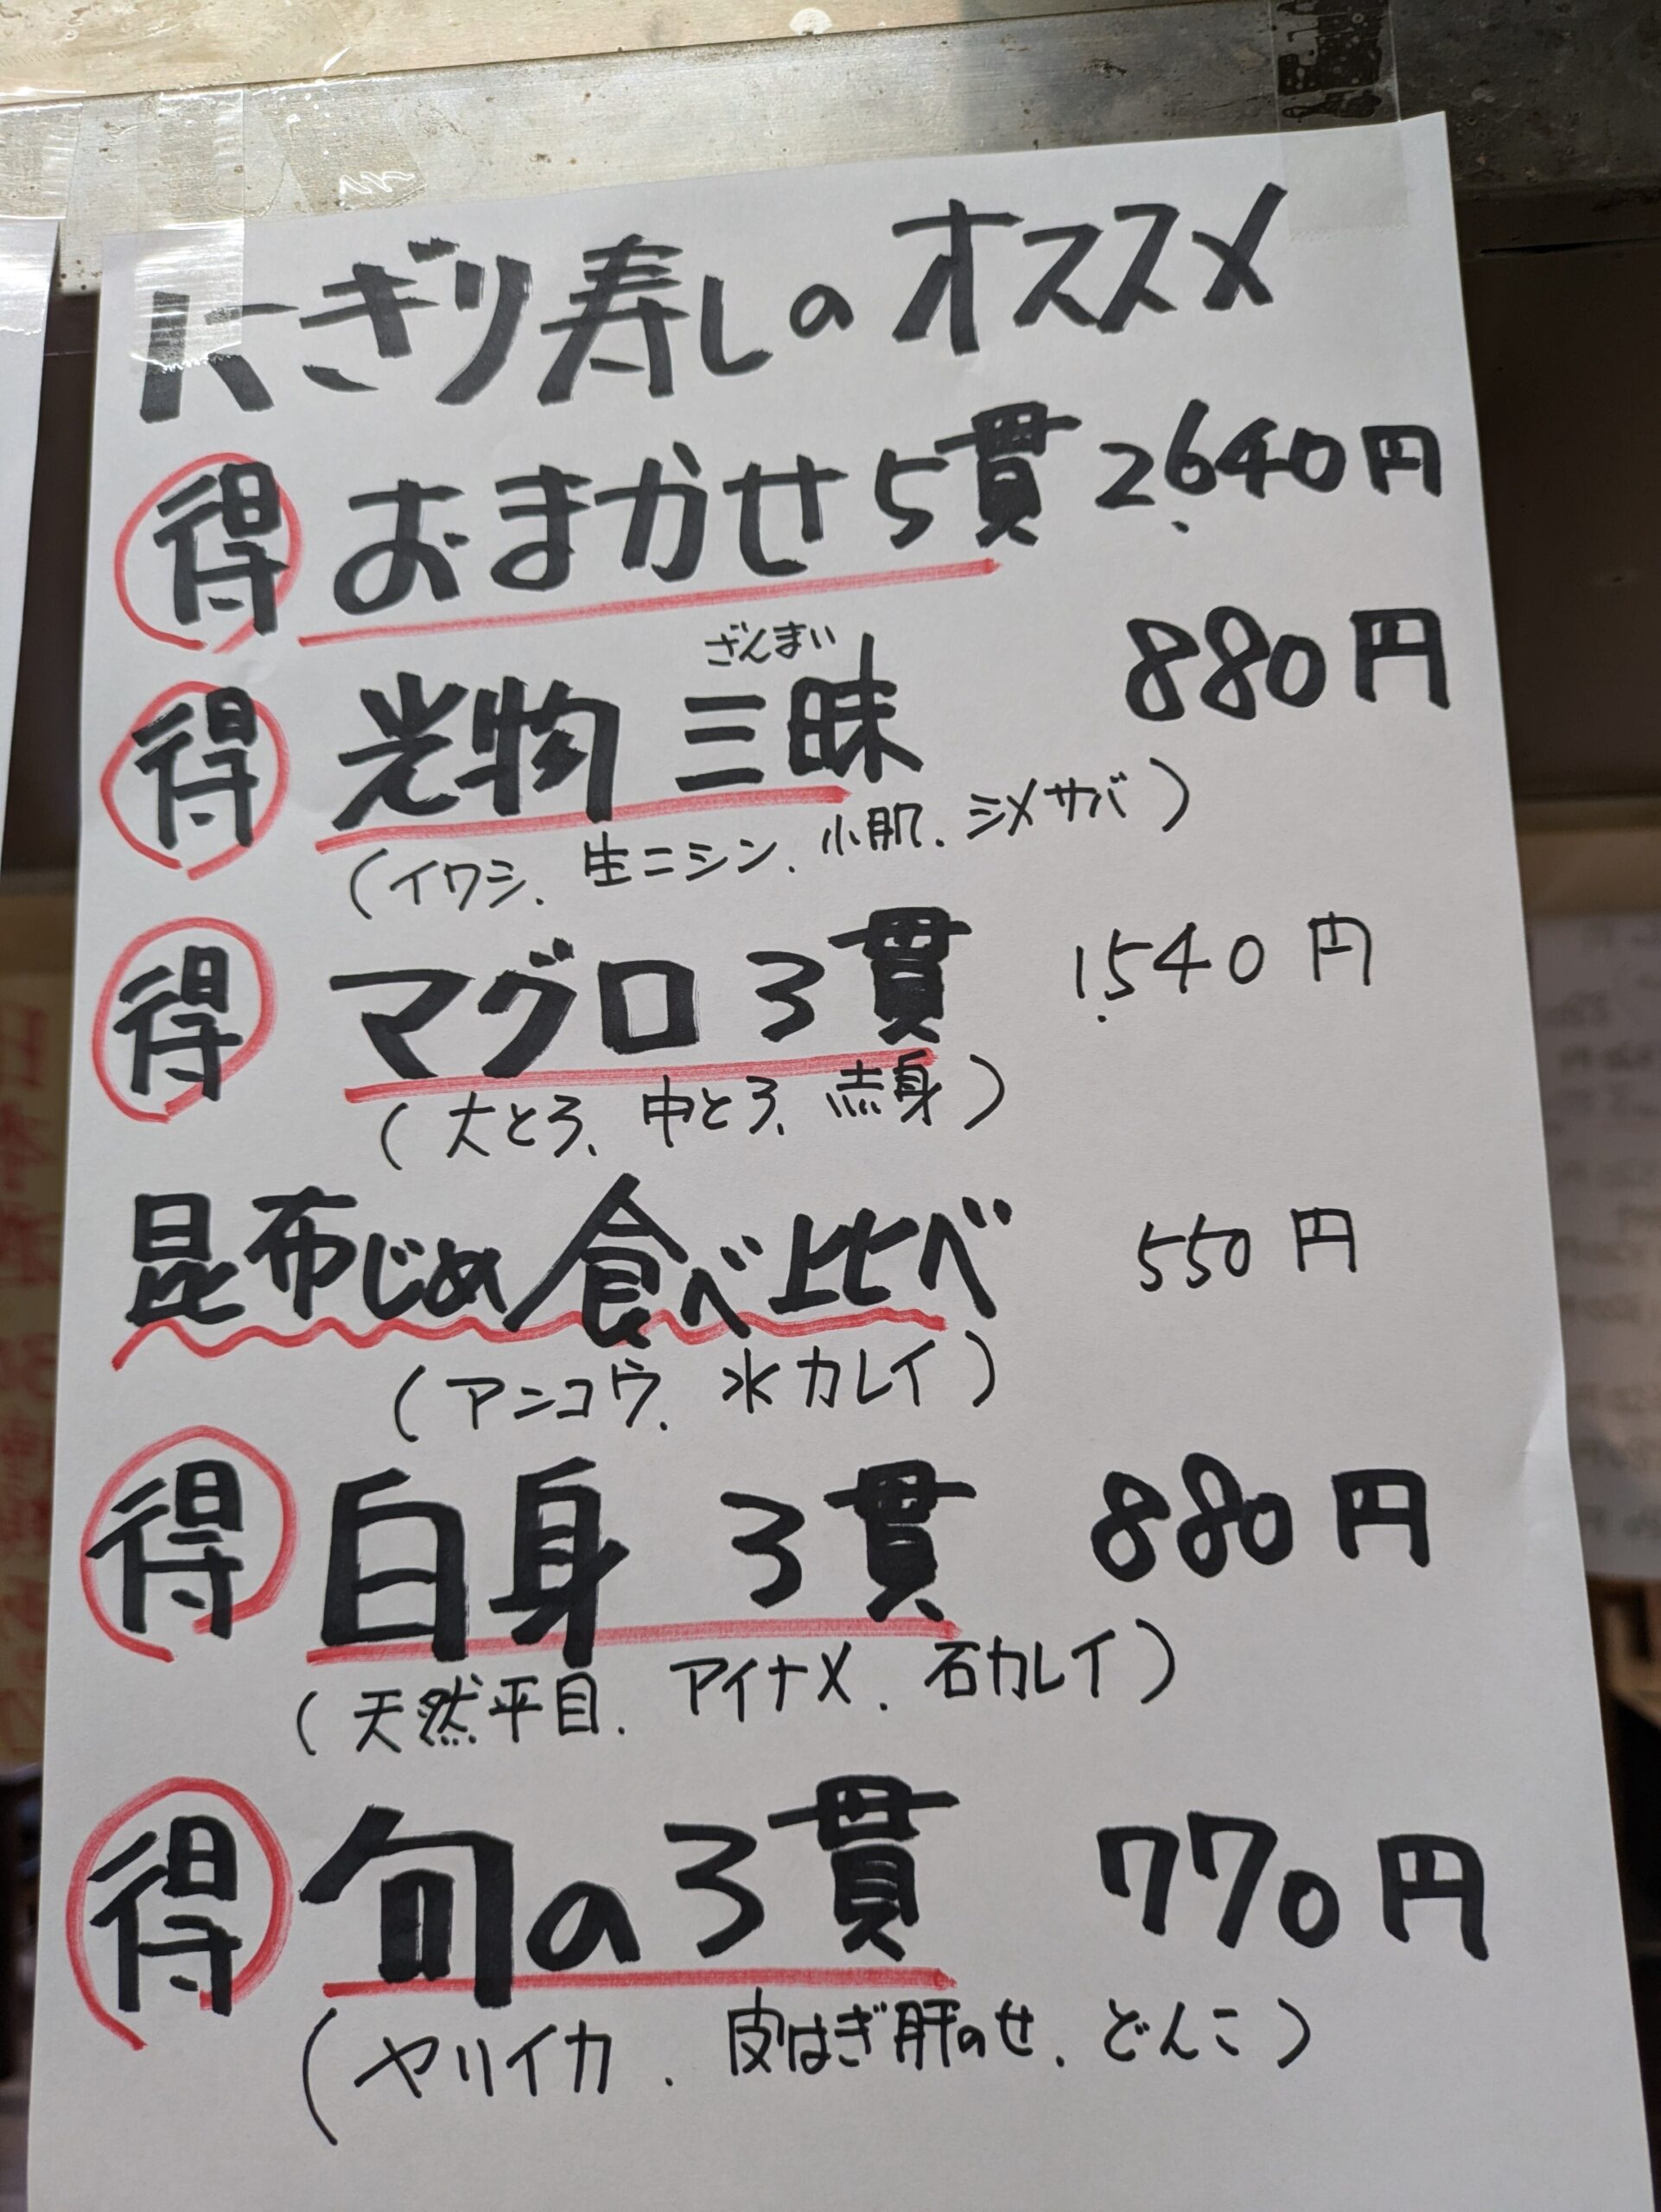 にぎり寿しのオススメ
得 おまかせ5貫 2,640円
ざんまい
得 光物 三昧 880円
(イワシ、生ニシン、小肌、シメサバ)
得 マグロ3貫 1,540円
(大とろ、中とろ、赤身)
昆布じめ食べ比べ 550円
(アンコウ、水カレイ)
得 白身 3貫 880円
(天然平目、アイナメ、石カレイ)
得 旬の3貫 770円
(ヤリイカ、皮はぎ肝のせ、どんこ)